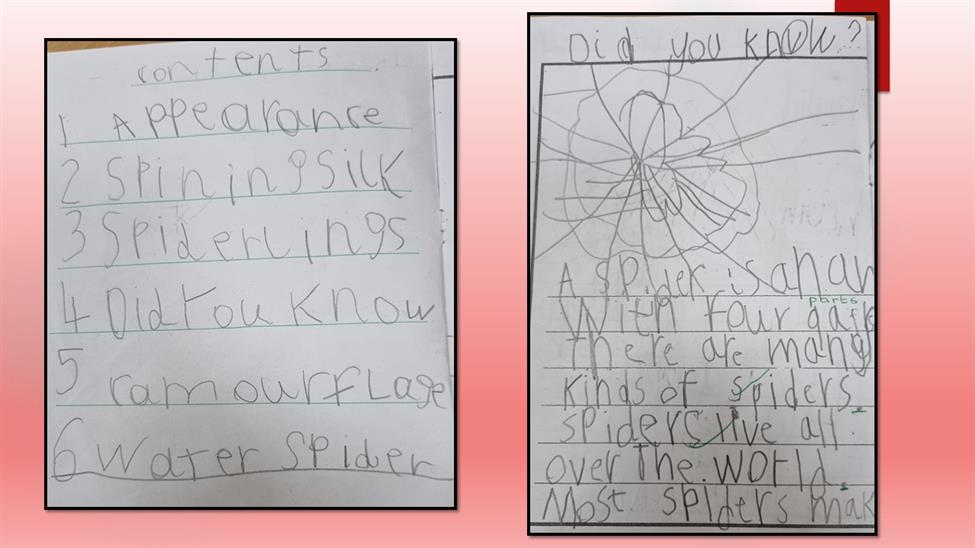 contents
1 Appearance
2 Spining Silk
3 Spiderlings
4 Did You Know
5 camourflage
6 Water Spider
Did you know?
A spider is an ar
parts
With four
there are many
kinds of spiders.
spiders live all
over the world.
Most spiders mak